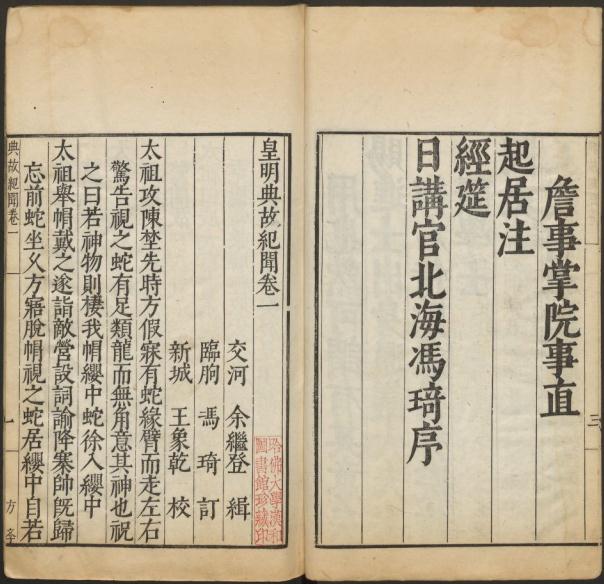 詹事掌院事直
起居注
經筵
日講官北海馮琦序
三
皇明典故紀聞卷一
交河 余繼登 緝
臨朐 馮琦 訂
新城 王象乾 校
哈佛大學漢和
圖書館珍藏印
太祖攻陳埜先時方假寐有蛇緣臂而走左右
驚告視之蛇有足類龍而無角意其神也祝
之曰若神物則棲我帽纓中蛇徐入纓中
太祖舉帽戴之遂詣敵營設詞諭降寨帥旣歸
忘前蛇坐久方寤脫帽視之蛇居纓中自若
典故紀聞卷一
一
方